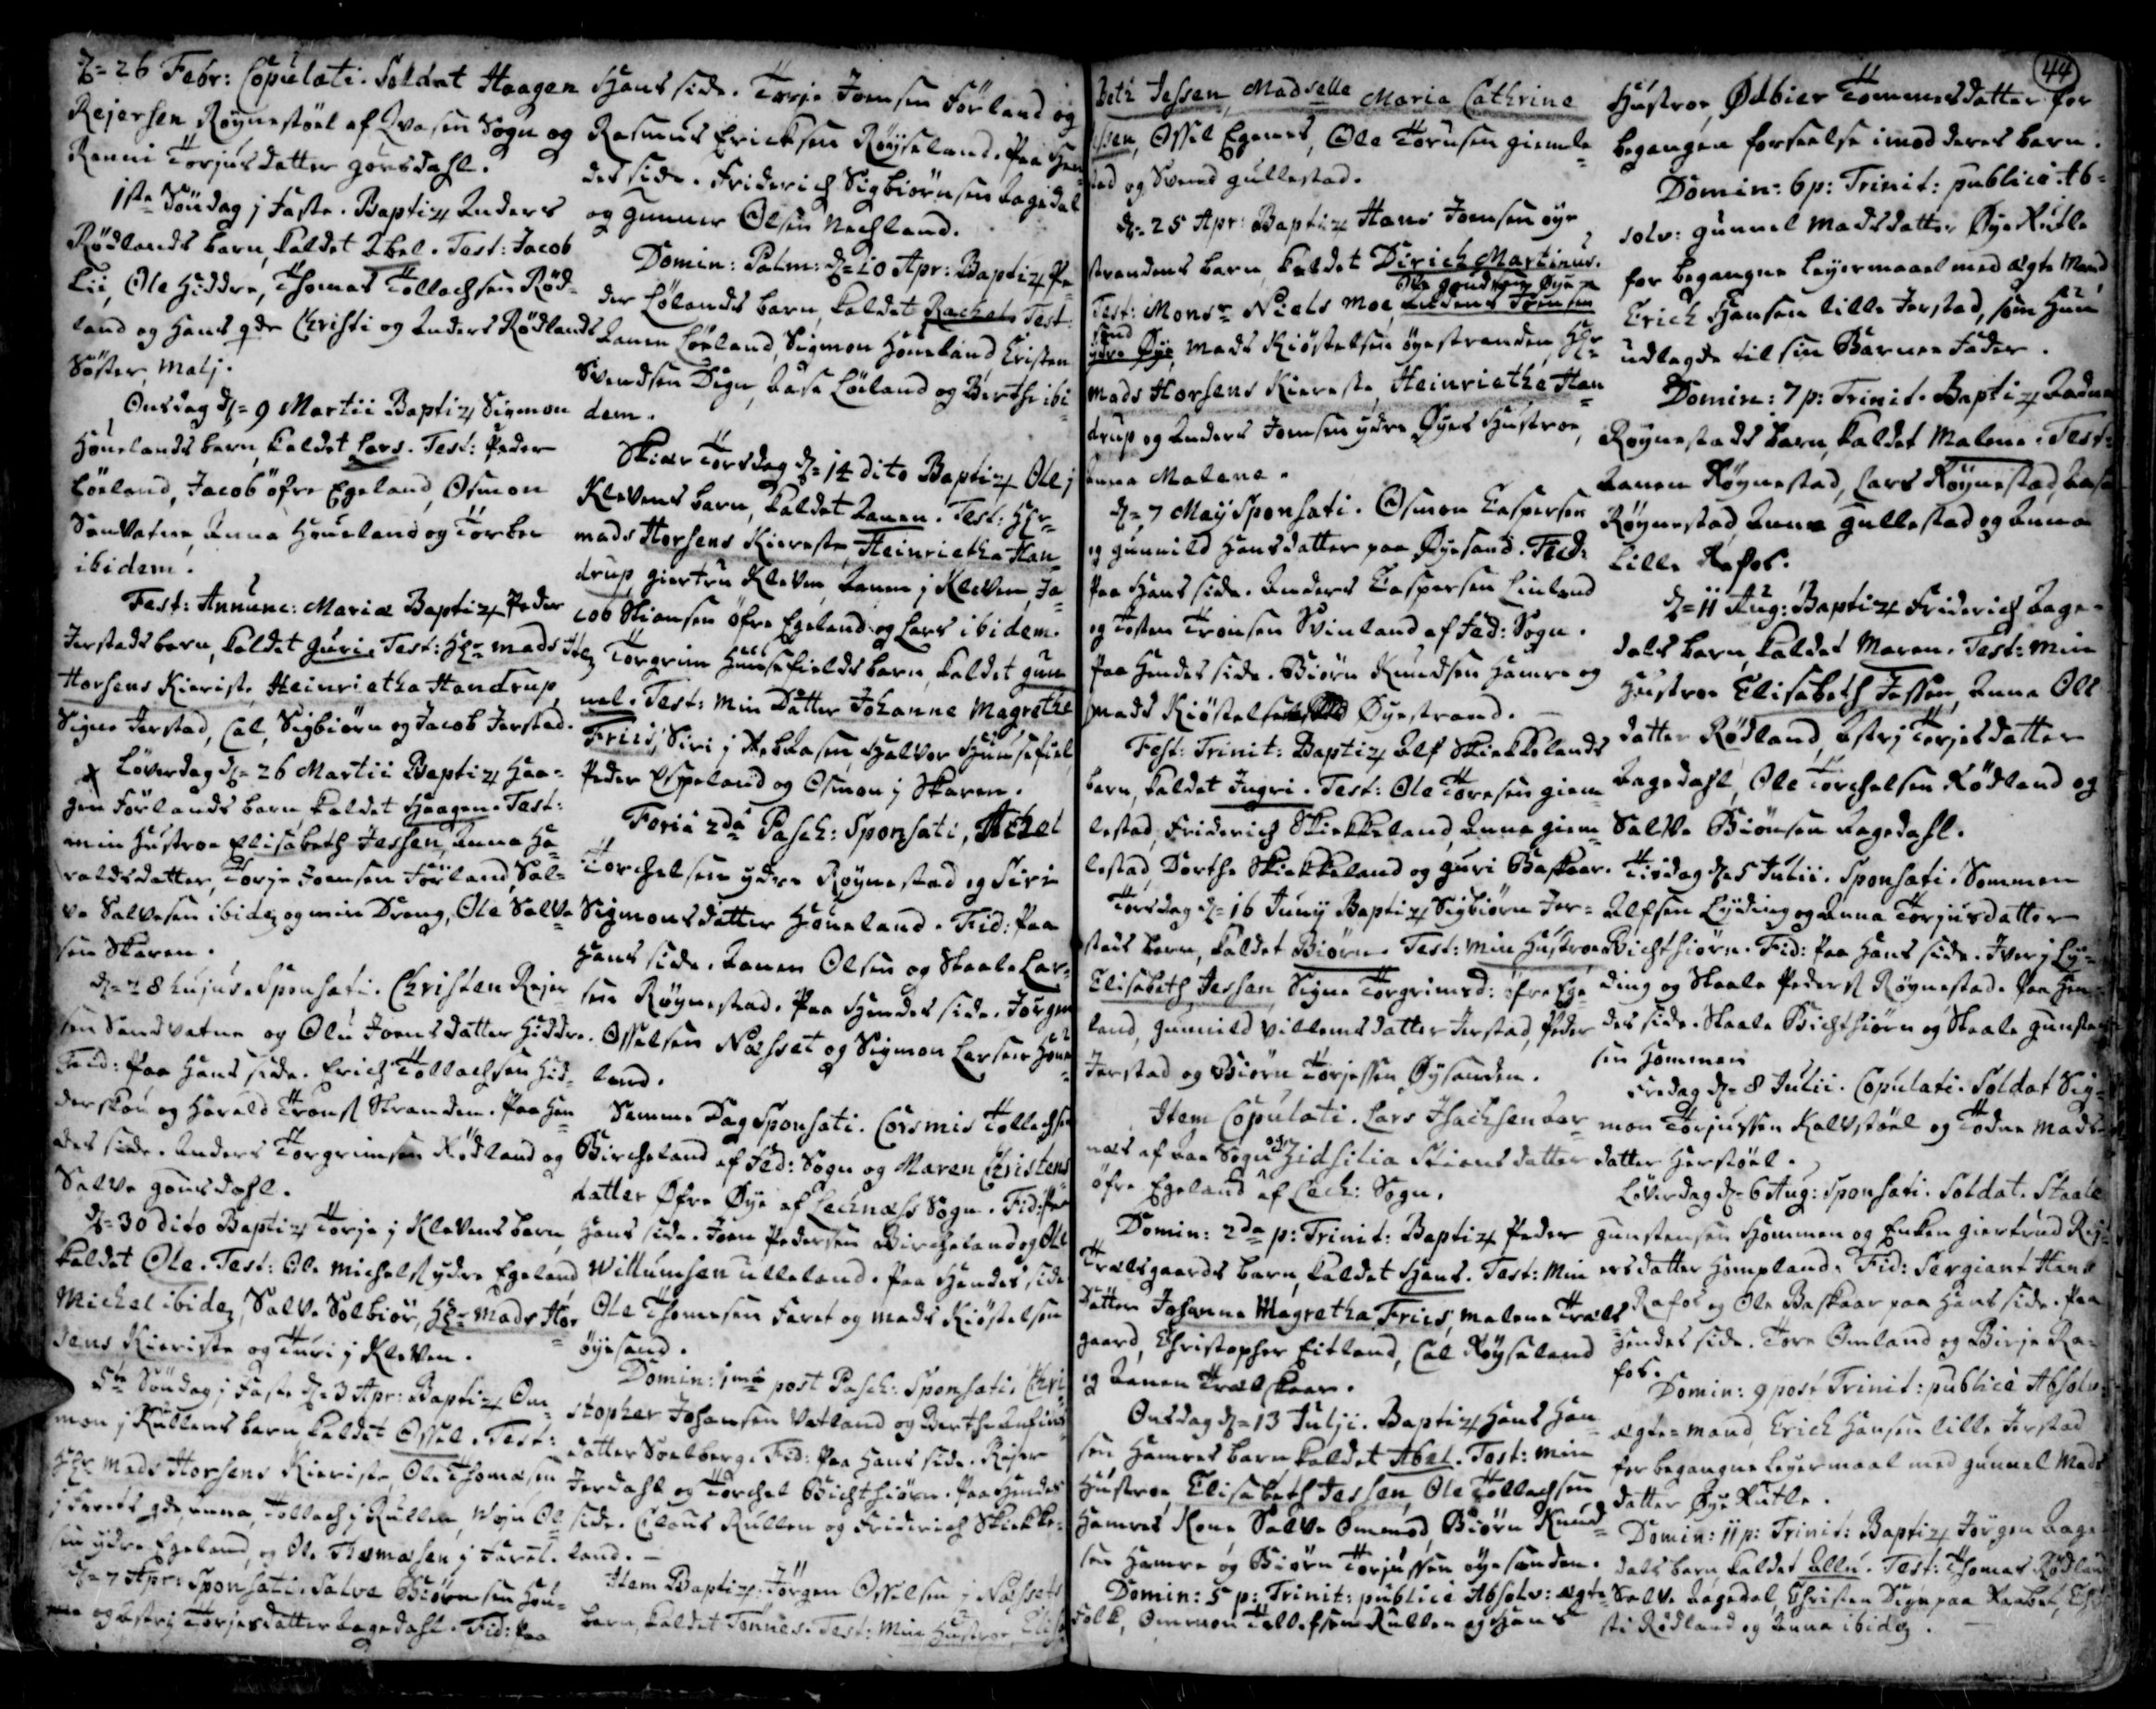 d. 26 Febr: Copulati. Soldat Haagen
Rejersen Röynestöel af Qvasen Sogn og
Ranni Torjusdatter gousdahl.
1ste Söndag j Faste. Baptiz Anders
Rödlands barn, kaldet Abel. Test: Jacob
Lii, Ole Hiddre, Thomas Tollachsen Röd=
land og Hans qde Christi og Anders Rödlands
Söster, Malj.
Onsdag d. 9 Martii Baptiz Sigmon
Hönelands barn, kaldet Lars. Test: Peder
Löeland, Jacob öfre Egeland, Osmon
Sanvatne, Anna Höneland og Torber
ibidem.
Fest: Annunc: Mariæ Baptiz Peder
Jerstads barn, kaldet Guri. Test: Hr Mads
Horsens Kieriste, Heinrietha Handrup,
Signe Jerstad, Cal, Sigbiörn og Jacob Jerstad.
Löverdag d. 26 Martii Baptiz Haa=
gen Förlands barn, kaldet Haagen. Test:
min Hustroe Elisabeth Jessen, Anna Ha=
raldsdatter, Torje Joensen Förland, Sal=
ve Salvesen ibidem og min Dreng, Ole Salve=
sen Skaren.
d. 28 hujus. Sponsati. Christen Rejer=
sen Sandvatne og Olu Joensdatter Hiddre.
Fid: Paa Hans side. Erich Tollachsen Hid=
derskou og Harald Trons Stranden. Paa Hen=
des side. Anders Torgrimsen Rödland og
Salve gousdahl.
d. 30 dito Baptiz Torje j Klevens barn,
kaldet Ole. Test: Ole Michels ydre Egeland,
Michel ibidem, Salve Solbiör, Hr Mads Hor=
sens Kieriste og Turi j Kleven.
5te Söndag j Faste d. 3 Apr: Baptiz Om=
mon j Kullens barn kaldet Ossel. Test:
Hr Mads Horsens Kieriste, Ole Thomasen
j Farets qde anna, Tollach j Kullen, Ol=
sen ydre Egeland, og Ole Thomasen j Faret.
d. 7 Apr: Sponsati. Salve Biörnsen Hou=
og Astrj Torjesdatter Lagedahl. Fid: Paa
Hans side. Torje Joensen Förland og
Rasmus Ericksen Röyseland. Paa Hen=
des side. Friderich Sigbiörnsen Lagedal
og Gunner Olsen Nechland.
Domin: Palm: d. 10 Apr: Baptiz Pe=
der Lölands barn, kaldet Rachel. Test:
Aanen Löeland, Sigmon Höneland, Cristen
Svendsen Degn, Aase Löeland og Berthe ibi=
dem.
Skier Torsdag d. 14 dito Baptiz Ole j
Klevens barn, kaldet Aanen. Test: Hr
Mads Horsens Kieriste, Heinrietha Han=
drup, giertru Kleven, Aanen j Kleven, Ja=
cob Stiansen öfre Egeland og Lars ibidem.
Item Torgrim Hunsfields barn, kaldet Gun=
nel. Test: Min Datter Johanne Magrethe
Friis, Siri j Rekkasen, Halvor Hunsefiel,
Peder Espeland og Osmon j Skaren.
Feria 2da Pasch: Sponsati, Achel
Torchelsen ydre Röynestad og Siri
Sigmonsdatter Höneland. Fid: Paa
Hans side. Aanen Olsen og Staale Lar=
sen Röynestad. Paa Hendes side. Jörgen
Osselsen Næsset og Sigmon Larsen Höne=
land.
Samme Dag Sponsati. Corsmis Tollachsen
Bircheland af Fed: Sogn og Maren Christens
datter Öfre Öye af Lechnæss Sogn. Fid: Paa
Hans side. Joen Pedersen Bircheland og Ole
Willumsen ulleland. Paa Hendes side
Ole Thomesen Faret og Mads Kiöstelsen
öyesand.
Domin: 1ma post Pasch: Sponsati. Chri=
stopher Johansen Vatland og Berthe Anfins
datter Soelberg. Fid: Paa Hans side. Rejer
Jerdahl og Torchel Bichthiörn. Paa Hendes
side. Claus Kullen og Friderich Skiekke=
land.
Item Baptiz. Jörgen Osselsen j Næssets
barn, kaldet Tönnes. Test: Min Hustroe Elisa
beth Jessen, Madselle Maria Cathrine
Ossel Egenes, Ole Torusen gimle=
stad og Svend gullestad.
d. 25 Apr: Baptiz Hans Joensen öye
strandens barn, kaldet Dirich Martinus.
Test: Monsr Niels Moe,
ydre Öye, Mads Kiöstelsen öyestranden, Hr
Mads Horsens Kieriste, Heinrietha Han=
drup og Anders Joensen ydre Öyes Hustroe,
Anna Malene.
d. 7 May Sponsati. Osmon Caspersen
og Gunnild Hansdatter paa Öyesand. Fid:
Paa Hans side. Anders Caspersen Linland
og Tosten Tronsen Svinland af Fed: Sogn.
Paa Hendes side. Biörn Knudsen Hamre og
Mads Kiöstelsen Öyestrand.
Fest: Trinit: Baptiz Alf Skiekkelands
barn, kaldet Ingri. Test: Ole Toresen giem=
lestad, Friderich Skiekkeland, Anna giem=
lestad, Dorthe Skiekkeland og Guri Baskaar.
Torsdag d. 16 Junij Baptiz Sigbiörn Jer=
stads barn, kaldet Biörn. Test: Min Hustroe
Elisabeth Jessen, Signe Torgrimsd: öfre Ege=
land, Gunnild Villemsdatter Jerstad, Peder
Jerstad og Biörn Torjessen Öysanden.
Item Copulati. Lars Isachsen
næs af Sogn og Zidsilia Stiansdatter
öfre Egeland af Lech: Sogn.
Domin: 2da p: Trinit: Baptiz Peder
Trælsgaards barn, kaldet Hans. Test: Min
Datter Johanna Magretha Friis, Malene Træls
gaard, Christopher Eitland, Cal Röyseland
og Aanen Trælskaar.
Onsdag d. 13 Julji. Baptiz Hans Han=
sen Hamres barn kaldet Abel. Test: Min
Hustroe, Elisabeth Jessen, Ole Tollachsen
Hamres Kone Salve Ommod, Biörn Knud=
sen Hamre og Biörn Torjussen öyesanden.
Domin: 5 p: Trinit: publicè Absolv: ægte
Folk, Ommon Tollefsen Kullen og Hans
44
Hustroe, Ödbier Tommesdatter for
begangen forseelse imod deres barn.
Domin: 6 p: Trinit: publicè Ab=
solv: Gunnel Madsdatter Öye Rutle
for begangne leyermaael med ægte Mand
Erich Hansen lille Jerstad, som Hun
udlagde til sin Barne Fader.
Domin: 7 p: Trinit. Baptiz
Röynestads barn, kaldet Malene. Test:
Aanen Röynestad, Lars Röynestad, Aasa
Röynestad, Anna Gullestad og Anna
Lille Rafos.
d. 11 Aug: Baptiz Friderich Lage=
dals barn, kaldet Maren. Test: Min
Hustroe Elisabeth Jessen, Anna Ols
datter Rödland, Astrj Torjesdatter
Lagedahl, Ole Torchelsen Rödland og
Salve Biörnsen Lagedahl.
Tisdag d. 5 Julii. Sponsati. Sommen
Alfsen Lyding og Anna Torjusdatter
Bichthiörn. Fid: Paa Hans side. Iver j Ly=
ding og Staale Peders Röynestad. Paa Hen=
des side. Staale Bichthiörn og Staale Gunsten=
sen Hommen
Fredag d. 8 Julii. Copulati. Soldat Sig=
mon Torjussen Kalvstöel og Todne Mads
datter Herstöel.
Löverdag d. 6 Aug: Sponsati. Soldat. Staale
Gunstensen Hommen og Enken Giertrud Rej=
ersdatter Hompland. Fid: Sergiant Hans
Rafos og Ole Baskaar paa Hans side. Paa
Hendes side. Tore Omland og Birje Ra=
fos.
Domin: 9 post Trinit: publicè Absolv:
ægte=mand, Erich Hansen lille Jerstad
for begangne leyermaal med Gunnel Mads
datter Öye Rutle.
Domin: 11 p: Trinit: Baptiz Jörgen Lage=
dals barn, kaldet Allu. Test: Thomas Rödland,
Salve Lagedal, Christen Degn paa Raabet, Chri
sti Rödland og Anna ibidem.